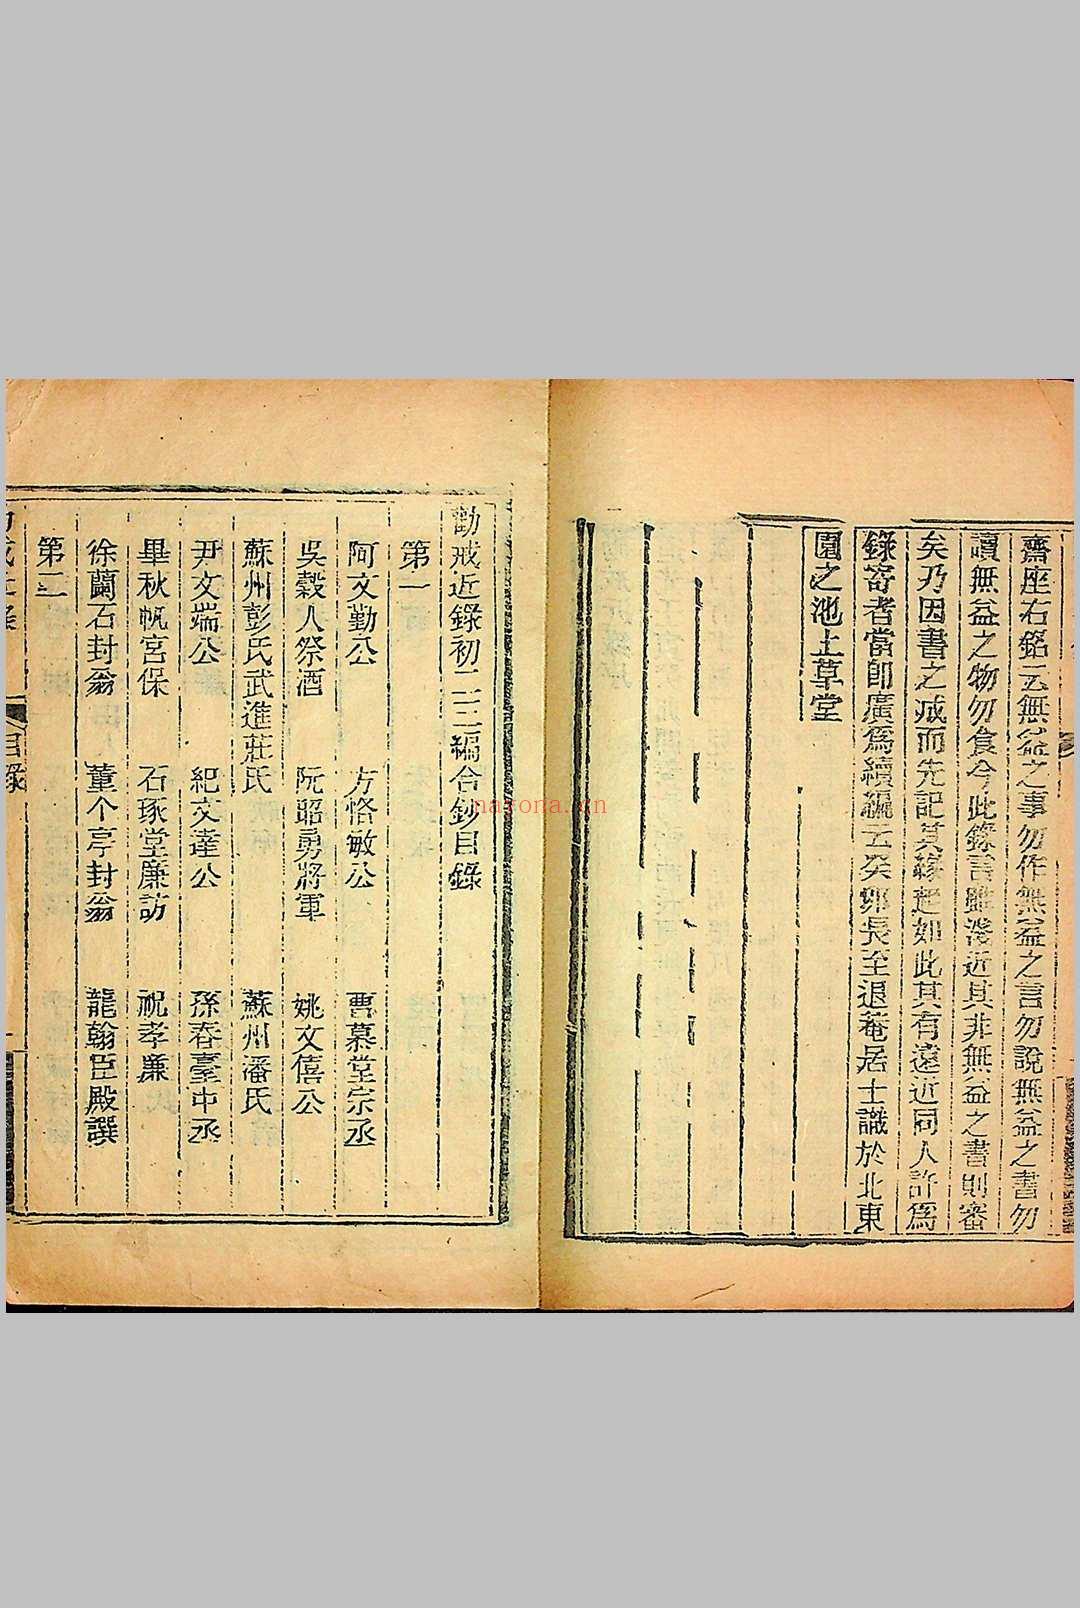 齋座右銘云無益之事勿作無益之言勿說無益之書勿
讀無益之物勿食今此錄言雖淺近其非無益之書則審
矣乃因書之減而先記其緣起如此其有遠近同人許爲
錄寄者當卽廣爲續編云癸卯長至退菴居士識於北東
園之池上草堂
勸戒近錄初二三編合鈔目錄
第一
阿文勤公 方恪敏公 曹慕堂宗丞
吳穀人祭酒 阮昭勇將軍 姚文僖公
蘇州彭氏武進莊氏 蘇州潘氏
尹文端公 紀文達公 孫春臺中丞
畢秋帆宮保 石琢堂廉訪 祝孝廉
徐蘭石封翁 董个亭封翁 龍翰臣殿譔
第二
目錄
nayona.cn